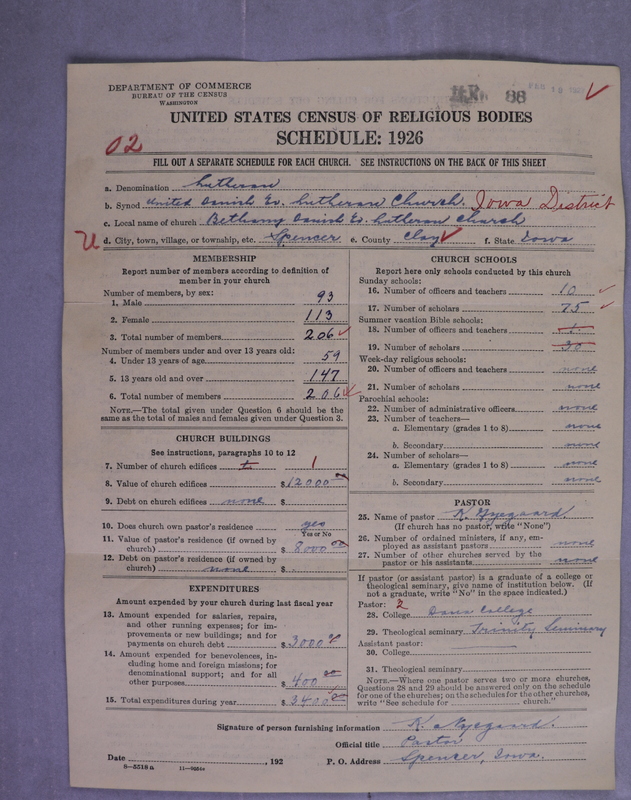 DEPARTMENT OF COMMERCE
BUREAU OF THE CENSUS
WASHINGTON
88
UNITED STATES CENSUS OF RELIGIOUS BODIES
SCHEDULE: 1926
02
FILL OUT A SEPARATE SCHEDULE FOR EACH CHURCH. SEE INSTRUCTIONS ON THE BACK OF THIS SHEET
a. Denomination Lutheran
b. Synod United Danish Ev. Lutheran Church. Iowa District
c. Local name of church Bethany Danish Ev. Lutheran Church
U d. City, town, village, or township, etc. Spencer e. County Clay f. State Iowa
MEMBERSHIP
Report number of members according to definition of
member in your church
Number of members, by sex:
1. Male 93
2. Female 113
3. Total number of members 206
Number of members under and over 13 years old:
4. Under 13 years of age 59
5. 13 years old and over 147
6. Total number of members 206
NOTE.—The total given under Question 6 should be the
same as the total of males and females given under Question 3.
CHURCH BUILDINGS
See instructions, paragraphs 10 to 12
7. Number of church edifices 1
8. Value of church edifices $12000 00
9. Debt on church edifices none $
10. Does church own pastor's residence yes
Yes or No
11. Value of pastor's residence (if owned by
church) $8000 00
12. Debt on pastor's residence (if owned by
church) none $
EXPENDITURES
Amount expended by your church during last fiscal year
13. Amount expended for salaries, repairs,
and other running expenses; for im-
provements or new buildings; and for
payments on church debt $3000 00
14. Amount expended for benevolences, in-
cluding home and foreign missions; for
denominational support; and for all
other purposes $400 00
15. Total expenditures during year $3400 00
CHURCH SCHOOLS
Report here only schools conducted by this church
Sunday schools:
16. Number of officers and teachers 10
17. Number of scholars 75
Summer vacation Bible schools:
18. Number of officers and teachers 1
19. Number of scholars 30
Week-day religious schools:
20. Number of officers and teachers none
21. Number of scholars none
Parochial schools:
22. Number of administrative officers none
23. Number of teachers—
a. Elementary (grades 1 to 8) none
b. Secondary none
24. Number of scholars—
a. Elementary (grades 1 to 8) none
b. Secondary none
PASTOR
25. Name of pastor K. Nyegaard.
(If church has no pastor, write "None")
26. Number of ordained ministers, if any, em-
ployed as assistant pastors none
27. Number of other churches served by the
pastor or his assistants none
If pastor (or assistant pastor) is a graduate of a college or
theological seminary, give name of institution below. (If
not a graduate, write "No" in the space indicated.)
Pastor: 2
28. College Dana College
29. Theological seminary Trinity Seminary
Assistant pastor:
30. College
31. Theological seminary
NOTE.—Where one pastor serves two or more churches,
Questions 28 and 29 should be answered only on the schedule
for one of the churches; on the schedules for the other churches,
write "See schedule for church."
Signature of person furnishing information K. Nyegaard.
Official title Pastor
Date , 192 P. O. Address Spencer, Iowa.
8—5518a